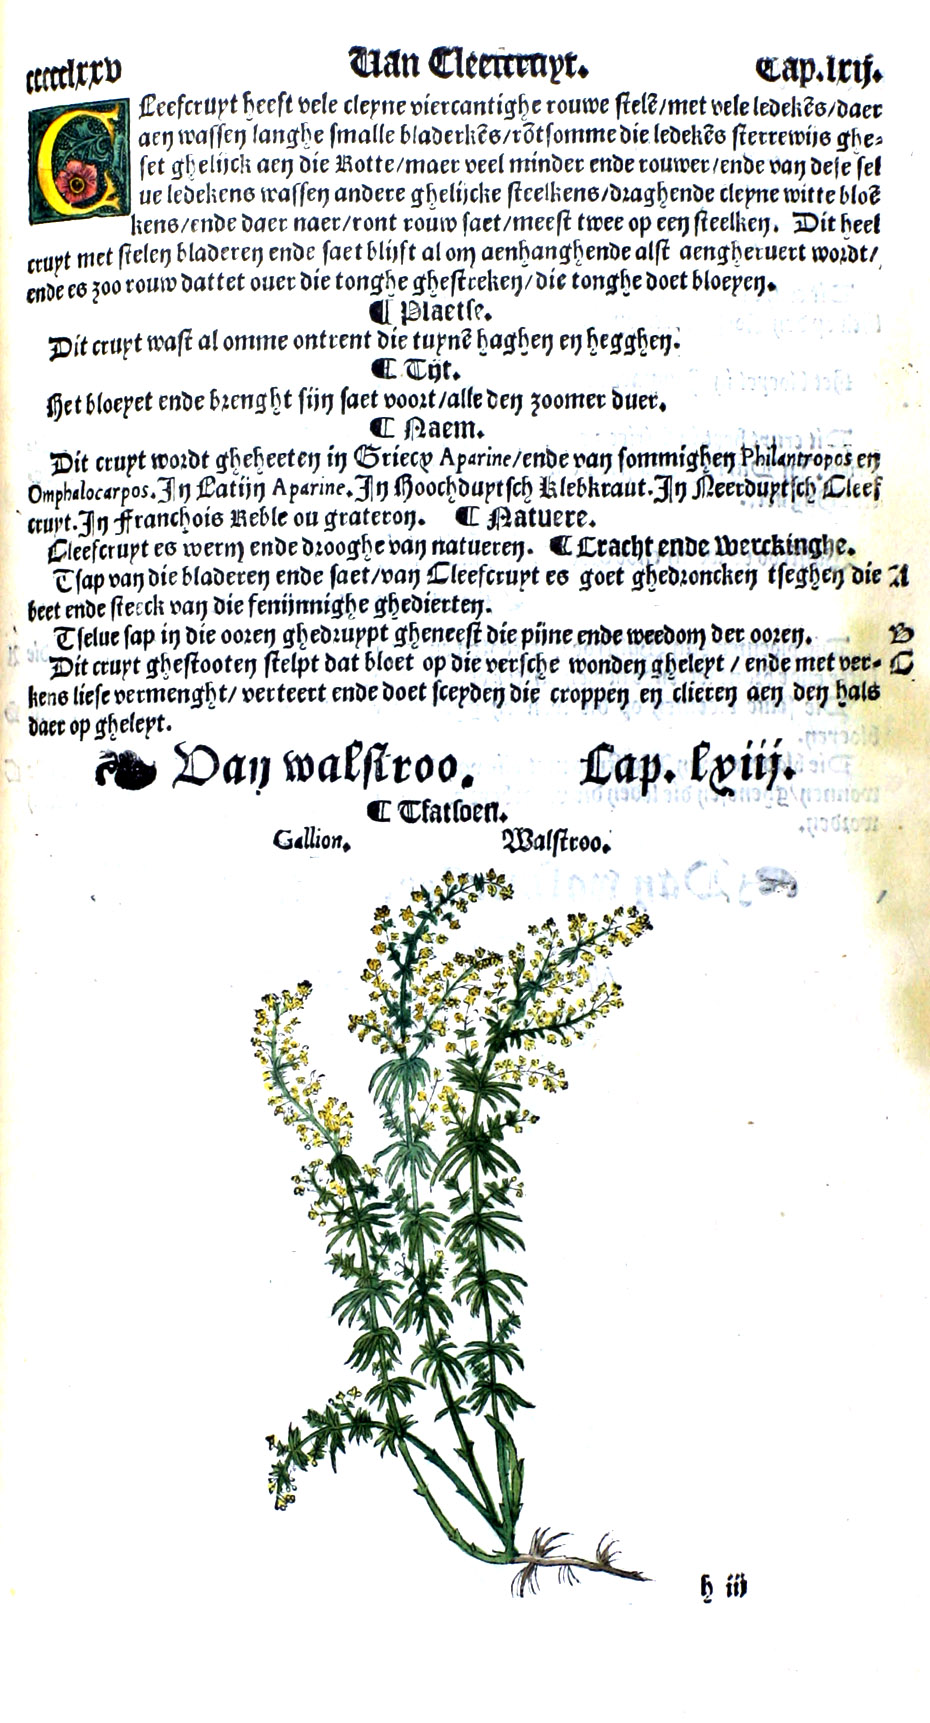 ccccclxxv Van Cleefcruyt. Cap.lxij.
CLeefcruyt heeft vele cleyne viercantighe rouwe stelē/met vele ledekēs/daer
aen wassen langhe smalle bladerkēs/rōtsomme die ledekēs sterrewijs ghe-
set ghelijck aen die Rotte/maer veel minder ende rouwer/ende van dese sel
ue ledekens wassen andere ghelijcke steelkens/draghende cleyne witte bloē
kens/ende daer naer/ront rouw saet/meest twee op een steelken. Dit heel
cruyt met stelen bladeren ende saet blijft al om aenhanghende alst aengheruert wordt/
ende es zoo rouw dattet ouer die tonghe ghestreken/die tonghe doet bloeyen.
¶ Plaetse.
Dit cruyt wast al omme ontrent die tuynē haghen en hegghen.
¶ Tijt.
Het bloeyet ende brenght sijn saet voort/alle den zoomer duer.
¶ Naem.
Dit cruyt wordt gheheeten in Griecx Aparine/ende van sommighen Philantropos en
Omphalocarpos. In Latijn Aparine. In Hoochduytsch Klebkraut. In Neerduytsch Cleef
cruyt. In Franchois Reble ou grateron. ¶ Natuere.
Cleefcruyt es werm ende drooghe van natueren. ¶ Cracht ende Werckinghe.
Tsap van die bladeren ende saet/van Cleefcruyt es goet ghedroncken tseghen die A
beet ende steeck van die fenijnnighe ghedierten.
Tselue sap in die ooren ghedruypt gheneest die pijne ende weedom der ooren. B
Dit cruyt ghestooten stelpt dat bloet op die versche wonden gheleyt / ende met ver- C
kens liese vermenght/ verteert ende doet sceyden die croppen en clieren aen den hals
daer op gheleyt.
Van walstroo. Cap. lxiij.
¶ Tfatsoen.
Gallion. Walstroo.
h iij